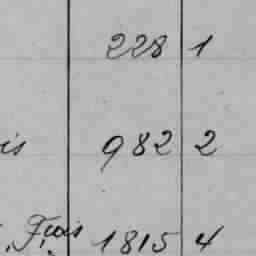 228 1
is 982 2
Frais 1815 4